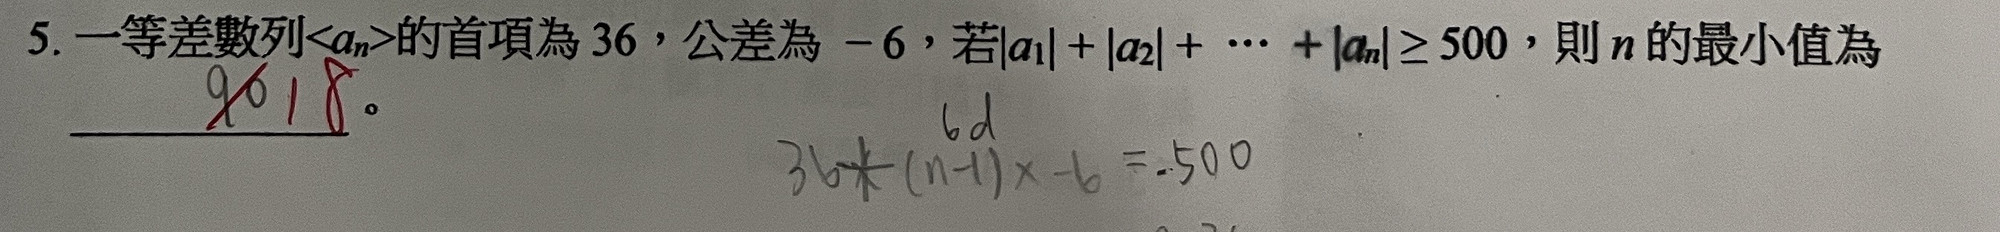 5. 一等差數列<aₙ>的首項為 36，公差為 －6，若|a₁| + |a₂| + ⋯ + |aₙ| ≥ 500，則 n 的最小值為
90 18。
6d
36+(n-1)×-6 = -500